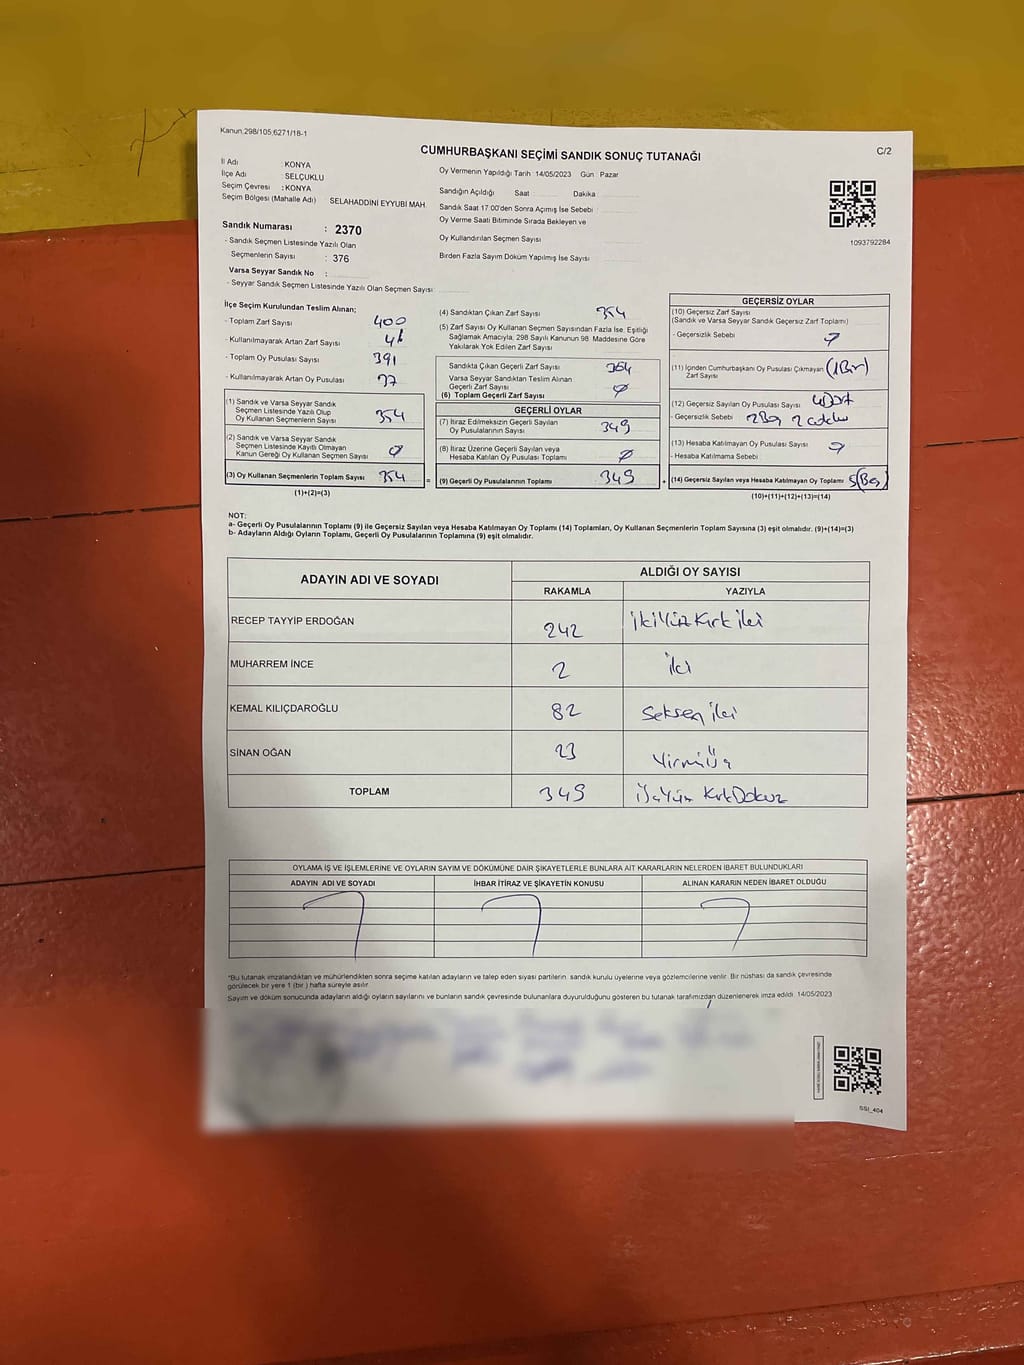 Kanun.298/105,6271/18-1
CUMHURBAŞKANI SEÇİMİ SANDIK SONUÇ TUTANAĞI
C/2
İl Adı : KONYA
İlçe Adı : SELÇUKLU
Seçim Çevresi : KONYA
Seçim Bölgesi (Mahalle Adı) SELAHADDİNİ EYYUBİ MAH.
Sandık Numarası : 2370
- Sandık Seçmen Listesinde Yazılı Olan
Seçmenlerin Sayısı : 376
Varsa Seyyar Sandık No :
- Seyyar Sandık Seçmen Listesinde Yazılı Olan Seçmen Sayısı
Oy Vermenin Yapıldığı Tarih 14/05/2023 Gün : Pazar
Sandığın Açıldığı Saat Dakika
Sandık Saat 17:00'den Sonra Açımış İse Sebebi
Oy Verme Saati Bitiminde Sırada Bekleyen ve
Oy Kullandırılan Seçmen Sayısı
Birden Fazla Sayım Döküm Yapılmış İse Sayısı
1093792284
İlçe Seçim Kurulundan Teslim Alınan;
- Toplam Zarf Sayısı 400
- Kullanılmayarak Artan Zarf Sayısı 46
- Toplam Oy Pusulası Sayısı 391
- Kullanılmayarak Artan Oy Pusulası 37
(1) Sandık ve Varsa Seyyar Sandık
Seçmen Listesinde Yazılı Olup
Oy Kullanan Seçmenlerin Sayısı 354
(2) Sandık ve Varsa Seyyar Sandık
Seçmen Listesinde Kayıtlı Olmayan
Kanun Gereği Oy Kullanan Seçmen Sayısı 0
(3) Oy Kullanan Seçmenlerin Toplam Sayısı 354 =
(1)+(2)=(3)
(4) Sandıktan Çıkan Zarf Sayısı 354
(5) Zarf Sayısı Oy Kullanan Seçmen Sayısından Fazla İse, Eşitliği
Sağlamak Amacıyla, 298 Sayılı Kanunun 98. Maddesine Göre
Yakılarak Yok Edilen Zarf Sayısı
Sandıkta Çıkan Geçerli Zarf Sayısı 354
Varsa Seyyar Sandıktan Teslim Alınan
Geçerli Zarf Sayısı 0
(6) Toplam Geçerli Zarf Sayısı
GEÇERLİ OYLAR
(7) İtiraz Edilmeksizin Geçerli Sayılan
Oy Pusulalarının Sayısı 349
(8) İtiraz Üzerine Geçerli Sayılan veya
Hesaba Katılan Oy Pusulası Toplamı 0
(9) Geçerli Oy Pusulalarının Toplamı 349 +
GEÇERSİZ OYLAR
(10) Geçersiz Zarf Sayısı
(Sandık ve Varsa Seyyar Sandık Geçersiz Zarf Toplamı)
- Geçersizlik Sebebi
(11) İçinden Cumhurbaşkanı Oy Pusulası Çıkmayan (1Bir)
Zarf Sayısı
(12) Geçersiz Sayılan Oy Pusulası Sayısı 4Dört
- Geçersizlik Sebebi
(13) Hesaba Katılmayan Oy Pusulası Sayısı
- Hesaba Katılmama Sebebi
(14) Geçersiz Sayılan veya Hesaba Katılmayan Oy Toplamı 5(Beş)
(10)+(11)+(12)+(13)=(14)
NOT:
a- Geçerli Oy Pusulalarının Toplamı (9) ile Geçersiz Sayılan veya Hesaba Katılmayan Oy Toplamı (14) Toplamları, Oy Kullanan Seçmenlerin Toplam Sayısına (3) eşit olmalıdır. (9)+(14)=(3)
b- Adayların Aldığı Oyların Toplamı, Geçerli Oy Pusulalarının Toplamına (9) eşit olmalıdır.
ADAYIN ADI VE SOYADI
ALDIĞI OY SAYISI
RAKAMLA YAZIYLA
RECEP TAYYİP ERDOĞAN 242 İkiYüz Kırk iki
MUHARREM İNCE 2 iki
KEMAL KILIÇDAROĞLU 82 Seksen iki
SİNAN OĞAN 23 YirmiÜç
TOPLAM 349 ÜçYüz KırkDokuz
OYLAMA İŞ VE İŞLEMLERİNE VE OYLARIN SAYIM VE DÖKÜMÜNE DAİR ŞİKAYETLERLE BUNLARA AİT KARARLARIN NELERDEN İBARET BULUNDUKLARI
ADAYIN ADI VE SOYADI İHBAR İTİRAZ VE ŞİKAYETİN KONUSU ALINAN KARARIN NEDEN İBARET OLDUĞU
*Bu tutanak imzalandıktan ve mühürlendikten sonra seçime katılan adayların ve talep eden siyasi partilerin sandık kurulu üyelerine veya gözlemcilerine verilir. Bir nüshası da sandık çevresinde
görülecek bir yere 1 (bir ) hafta süreyle asılır.
Sayım ve döküm sonucunda adayların aldığı oyların sayılarını ve bunların sandık çevresinde bulunanlara duyurulduğunu gösteren bu tutanak tarafımızdan düzenlenerek imza edildi. 14/05/2023
SSI_404